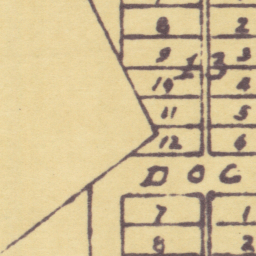 8 2
9 3
10 4
11 5
12 6
D O C
7 1
8 2